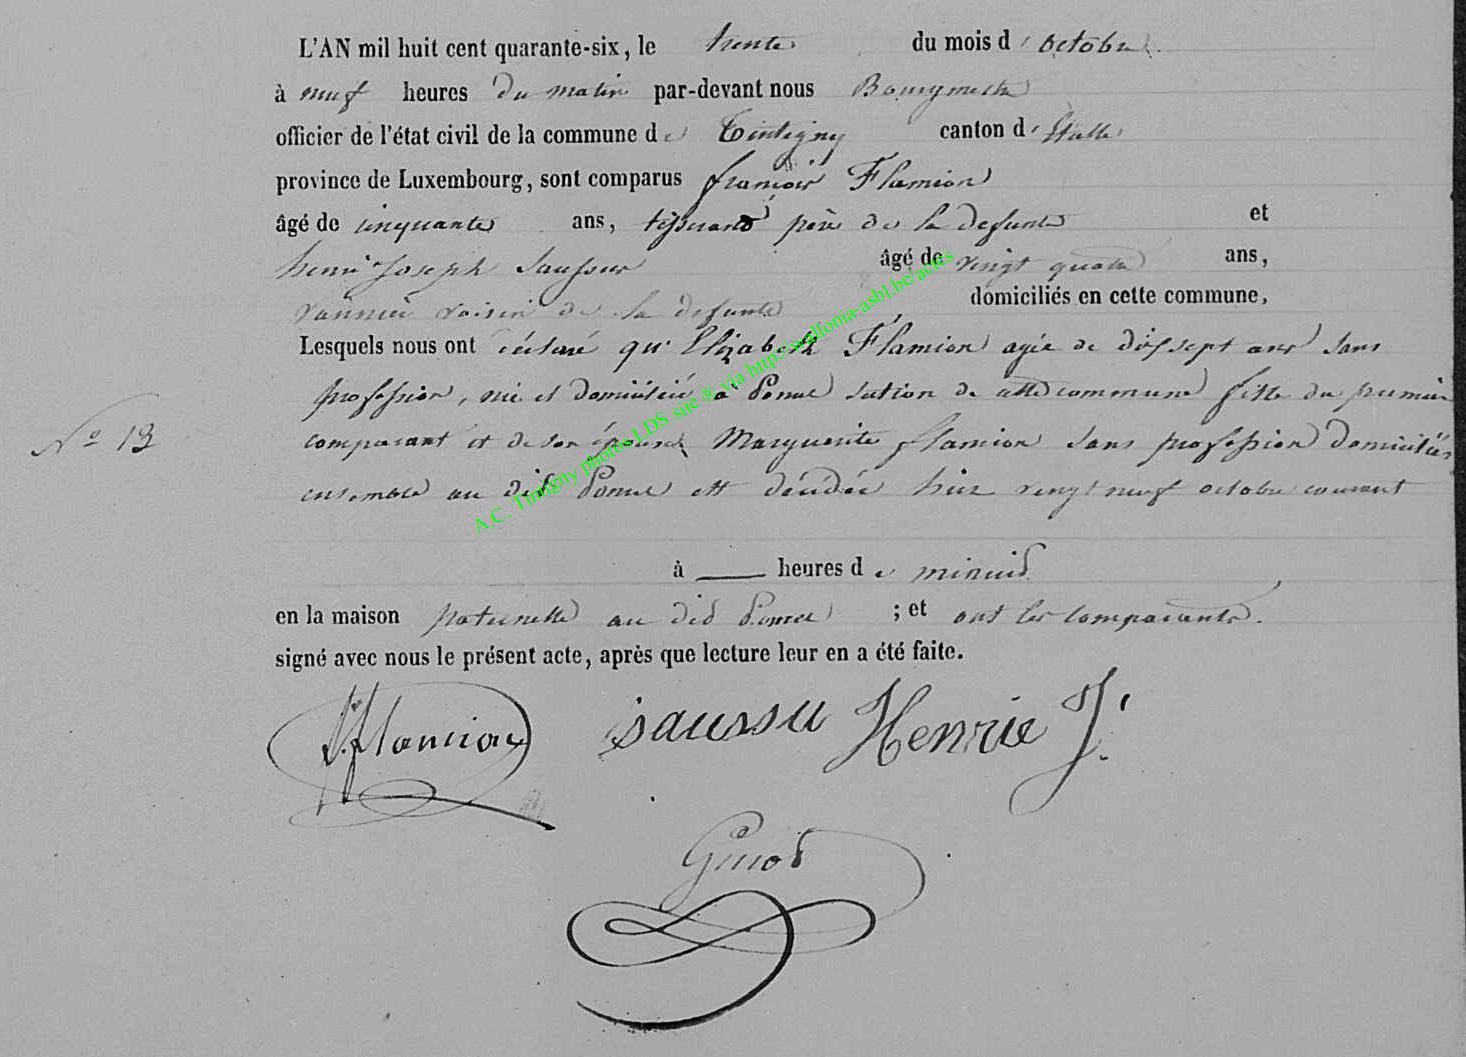 L'AN mil huit cent quarante-six, le trente du mois d'octobre
à neuf heures du matin par-devant nous Bourgmestre
officier de l'état civil de la commune de Tintigny canton d'Etalle
province de Luxembourg, sont comparus françois Flamion
âgé de cinquante ans, tisserand père de la defunte et
henri Joseph Saussus âgé de vingt quatre ans,
vannier voisin de la defunte domiciliés en cette commune,
Lesquels nous ont déclaré qu'Elizabeth Flamion agée de dix sept ans sans
profession, née et domiciliée à section de cette commune fille du premier
N° 13
comparant et de son épouse Marguerite flamion sans profession domiciliés
ensemble au dit est décédée hier vingt neuf octobre courant
à — heures de minuid
en la maison paternelle au did ; et ont les comparants.
signé avec nous le présent acte, après que lecture leur en a été faite.
flamion saussu Henrie J.
A.C. Tintigny photos LDS site ® via http://wallonia-asbl.be/actes